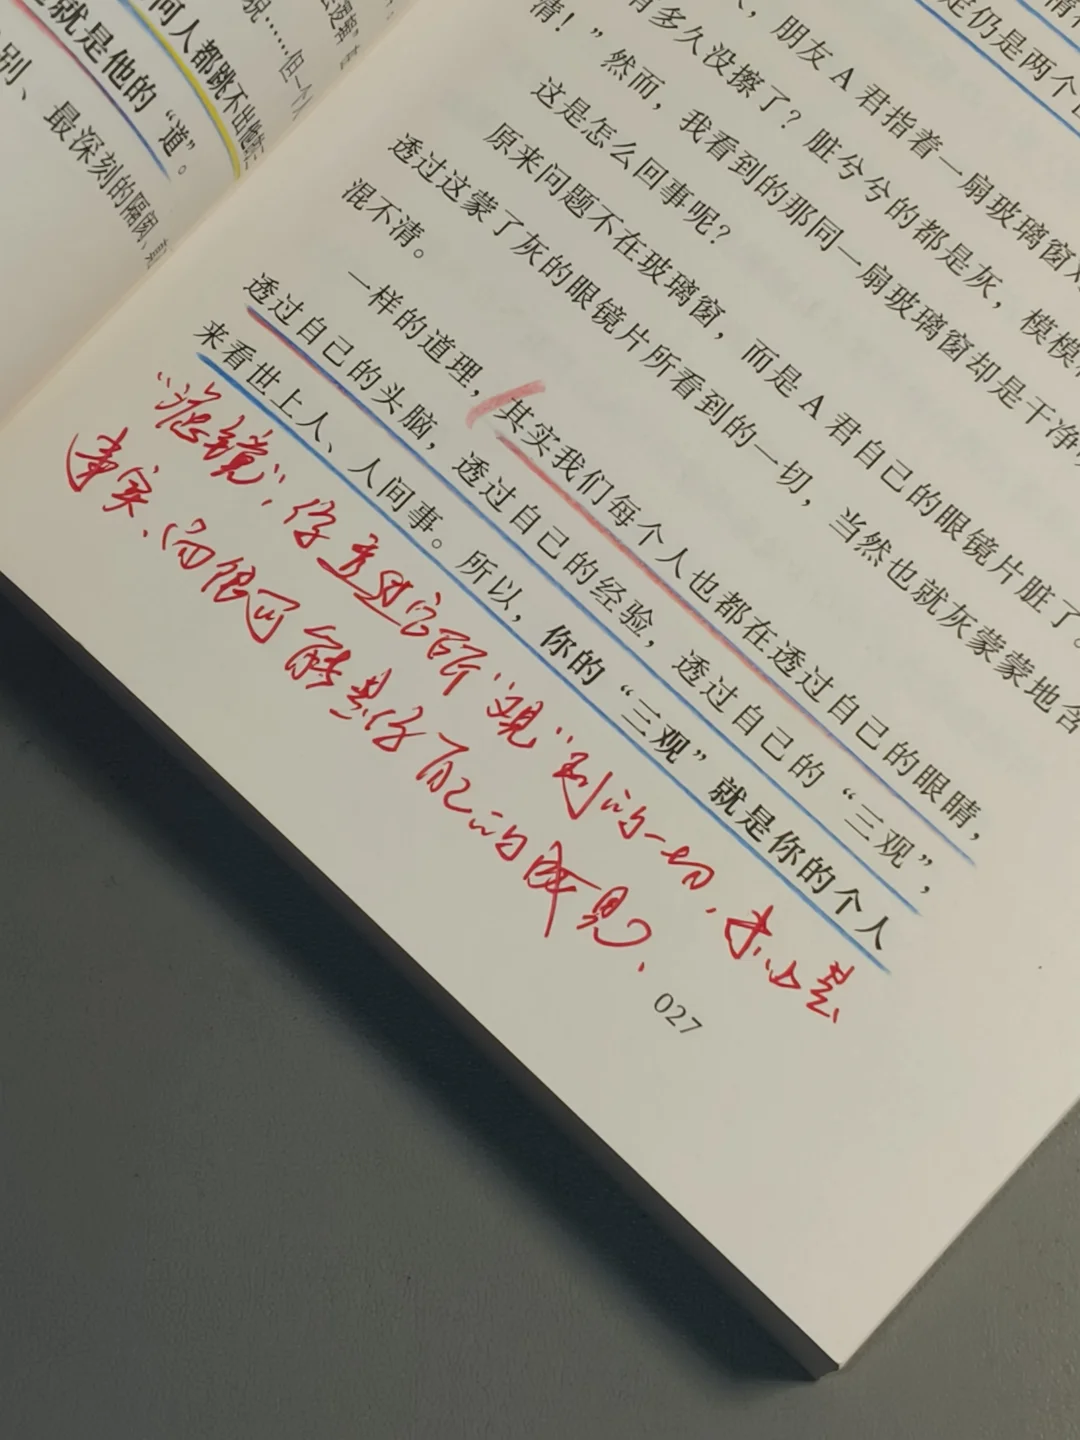 何人都跳不出
就是他的“道”。
别、最深刻的隔阂
定仍是两个
，朋友 A 君指着一扇玻璃窗对
有多久没擦了？脏兮兮的都是灰，模模
清！”然而，我看到的那同一扇玻璃窗却是干净
这是怎么回事呢？
原来问题不在玻璃窗，而是 A 君自己的眼镜片脏了。
透过这蒙了灰的眼镜片所看到的一切，当然也就灰蒙蒙地含
混不清。
一样的道理，其实我们每个人也都在透过自己的眼睛，
透过自己的头脑，透过自己的经验，透过自己的“三观”，
来看世上人、人间事。所以，你的“三观”就是你的个人
“滤镜”，你透过它所“观”到的一切，未必是
事实、而很可能是你自己的成见，
027